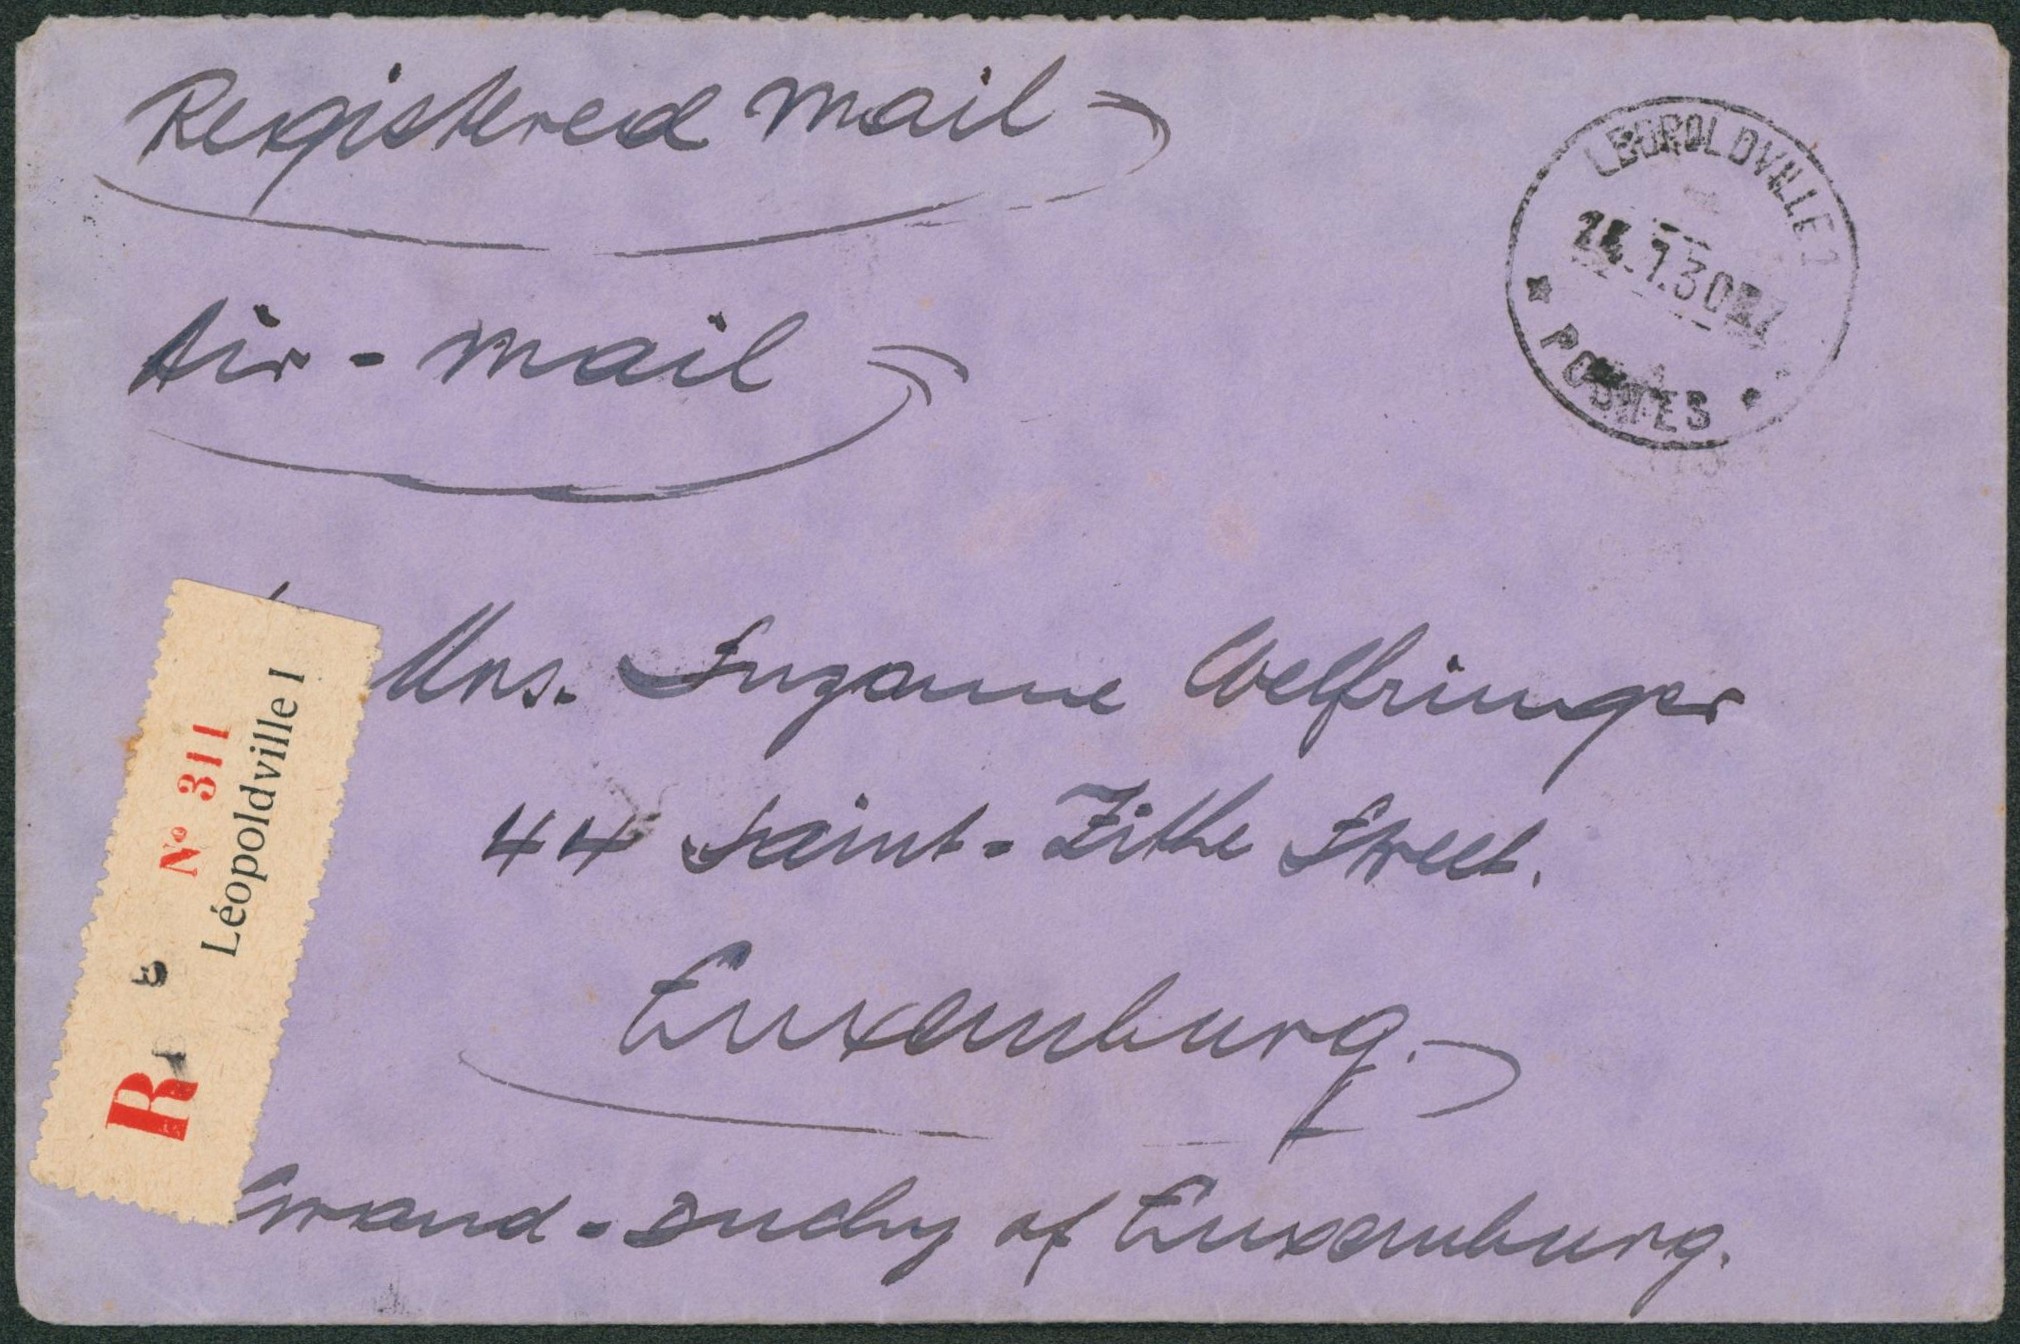 Registered mail
LEOPOLDVILLE 1
7.30
POSTES
Air - mail
R
Nº 311
Léopoldville 1
Mrs. Suzanne Welfringer
44 Saint - Zithe Street.
Luxemburg.
Grand - Duchy of Luxemburg.